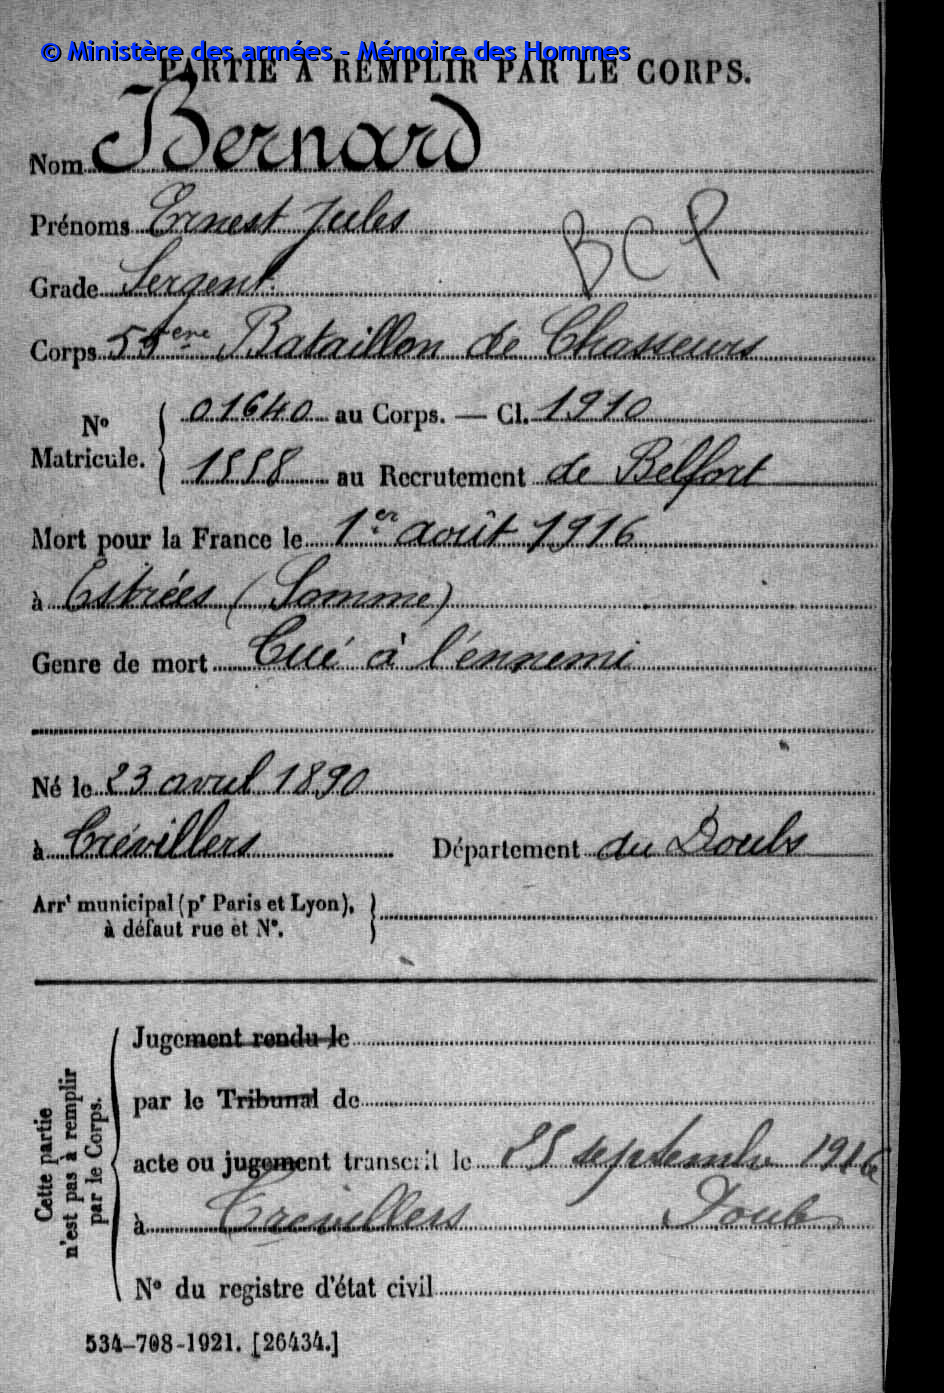 © Ministère des armées - Mémoire des Hommes
PARTIE A REMPLIR PAR LE CORPS.
Nom Bernard
Prénoms Ernest Jules
BCP
Grade Sergent.
Corps 55ere Bataillon de Chasseurs
No Matricule.
01640 au Corps. — Cl. 1910
1558 au Recrutement de Belfort
Mort pour la France le 1er août 1916
à Estrées (Somme)
Genre de mort Tué à l'ennemi
Né le 23 avril 1890
à Trévillers Département du Doubs
Arrt municipal (pr Paris et Lyon),
à défaut rue et No.
Cette partie
n'est pas à remplir
par le Corps.
Jugement rendu le
par le Tribunal de
acte ou jugement transcrit le 25 septembre 1916
à Trévillers Doubs
No du registre d'état civil
534-708-1921. [26434.]